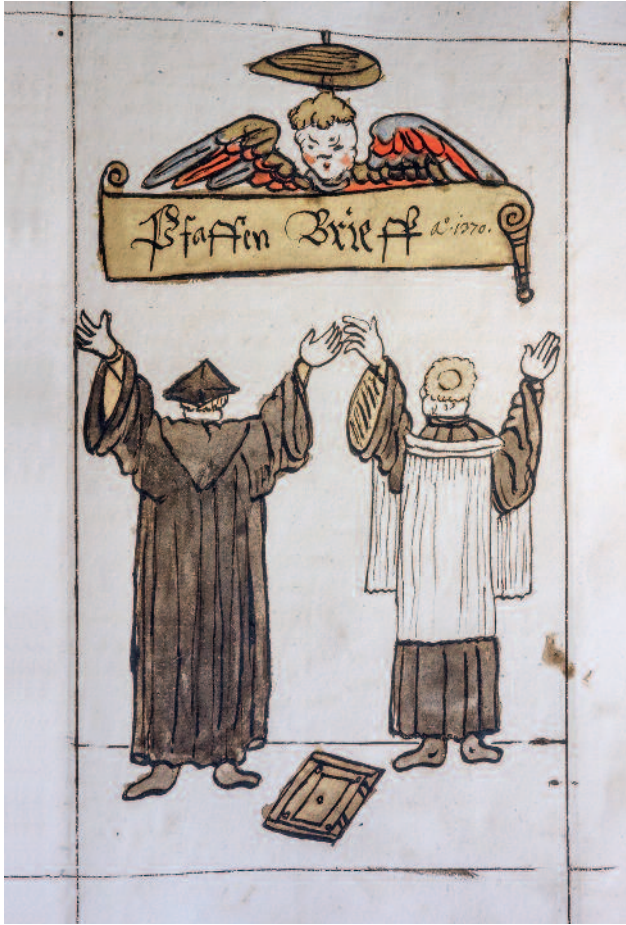 Pfaffen Brieff aº. 1370.